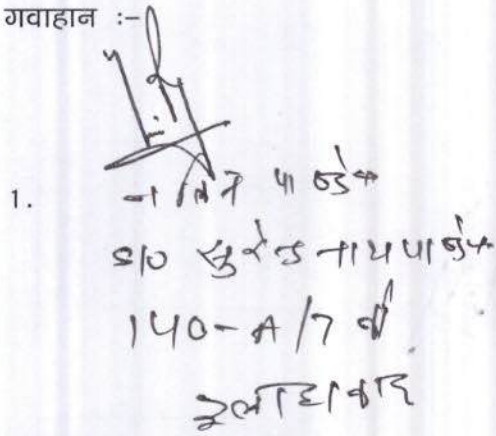 गवाहान :-
1. पाण्डेय
S/o सुरेन्द्र नाथ पाण्डेय
140-A/7 बी
इलाहाबाद